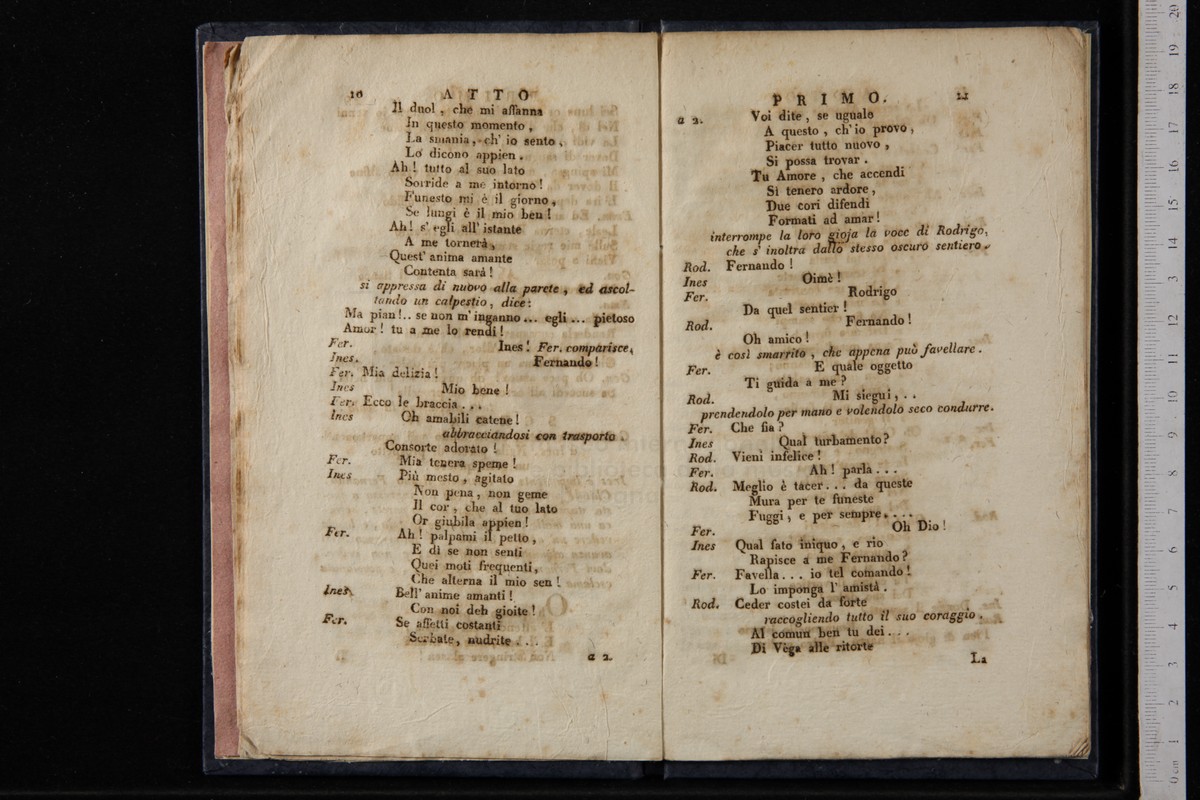 10 ATTO
Il duol, che mi affanna
In questo momento,
La smania, ch' io sento,
Lo dicono appien.
Ah! tutto al suo lato
Sorride a me intorno!
Funesto mi è il giorno,
Se lungi è il mio ben!
Ah! s' egli all' istante
A me tornerà,
Quest' anima amante
Contenta sarà!
si appressa di nuovo alla parete, ed ascol-
tando un calpestio, dice:
Ma pian!.. se non m' inganno... egli... pietoso
Amor! tu a me lo rendi!
Fer. Ines! Fer. comparisce,
Ines. Fernando!
Fer. Mia delizia!
Ines Mio bene!
Fer. Ecco le braccia...
Ines Oh amabili catene!
abbracciandosi con trasporto.
Consorte adorato!
Fer. Mia tenera speme!
Ines Più mesto, agitato
Non pena, non geme
Il cor, che al tuo lato
Or giubila appien!
Fer. Ah! palpami il petto,
E dì se non senti
Quei moti frequenti,
Che alterna il mio sen!
Ines. Bell' anime amanti!
Con noi deh gioite!
Fer. Se affetti costanti
Serbate, nudrite....
a 2.
PRIMO. 11
a 2. Voi dite, se uguale
A questo, ch' io provo,
Piacer tutto nuovo,
Si possa trovar.
Tu Amore, che accendi
Sì tenero ardore,
Due cori difendi
Formati ad amar!
interrompe la loro gioja la voce di Rodrigo,
che s' inoltra dallo stesso oscuro sentiero.
Rod. Fernando!
Ines Oimè!
Fer. Rodrigo
Da quel sentier!
Rod. Fernando!
Oh amico!
è così smarrito, che appena può favellare.
Fer. E quale oggetto
Ti guida a me?
Rod. Mi siegui,..
prendendolo per mano e volendolo seco condurre.
Fer. Che fia?
Ines Qual turbamento?
Rod. Vieni infelice!
Fer. Ah! parla...
Rod. Meglio è tacer... da queste
Mura per te funeste
Fuggi, e per sempre....
Fer. Oh Dio!
Ines Qual fato iniquo, e rio
Rapisce a me Fernando?
Fer. Favella... io tel comando!
Lo imponga l' amistà.
Rod. Ceder costei da forte
raccogliendo tutto il suo coraggio.
Al comun ben tu dei...
Di Vega alle ritorte
La